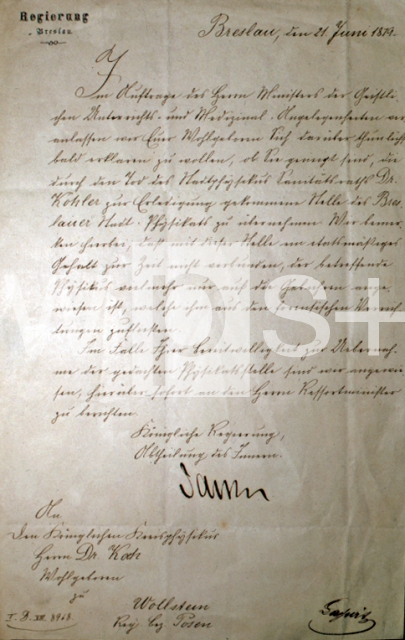 Regierung
Breslau.
Breslau, den 21. Juni 1879.
Im Auftrage des Herrn Ministers der Geistli-
chen Unterrichts- und Medizinal-Angelegenheiten ver-
anlassen wir Euer Wohlgeboren Sich darüber thunlichst
bald erklären zu wollen, ob Sie geneigt sind, die
durch den Tod des Stadtphysikus Sanitätsraths Dr.
Köhler zur Erledigung gekommene Stelle des Bres-
lauer Stadt-Physikats zu übernehmen. Wir bemer-
ken hierbei, daß mit dieser Stelle ein etatsmäßiges
Gehalt zur Zeit nicht verbunden, der betreffende
Physikus vielmehr nur auf die Gebühren ange-
wiesen ist, welche ihm aus den forensischen Verrich-
tungen zufließen.
Im Falle Ihrer Bereitwilligkeit zur Uebernah-
me der gedachten Physikatsstelle sind wir angewie-
sen, hierüber sofort an den Herrn Ressortminister
zu berichten.
Königliche Regierung,
Abtheilung des Innern.
An
den Königlichen Kreisphysikus
Herrn Dr. Koch
Wohlgeboren
zu
Wollstein
Reg. Bez. Posen